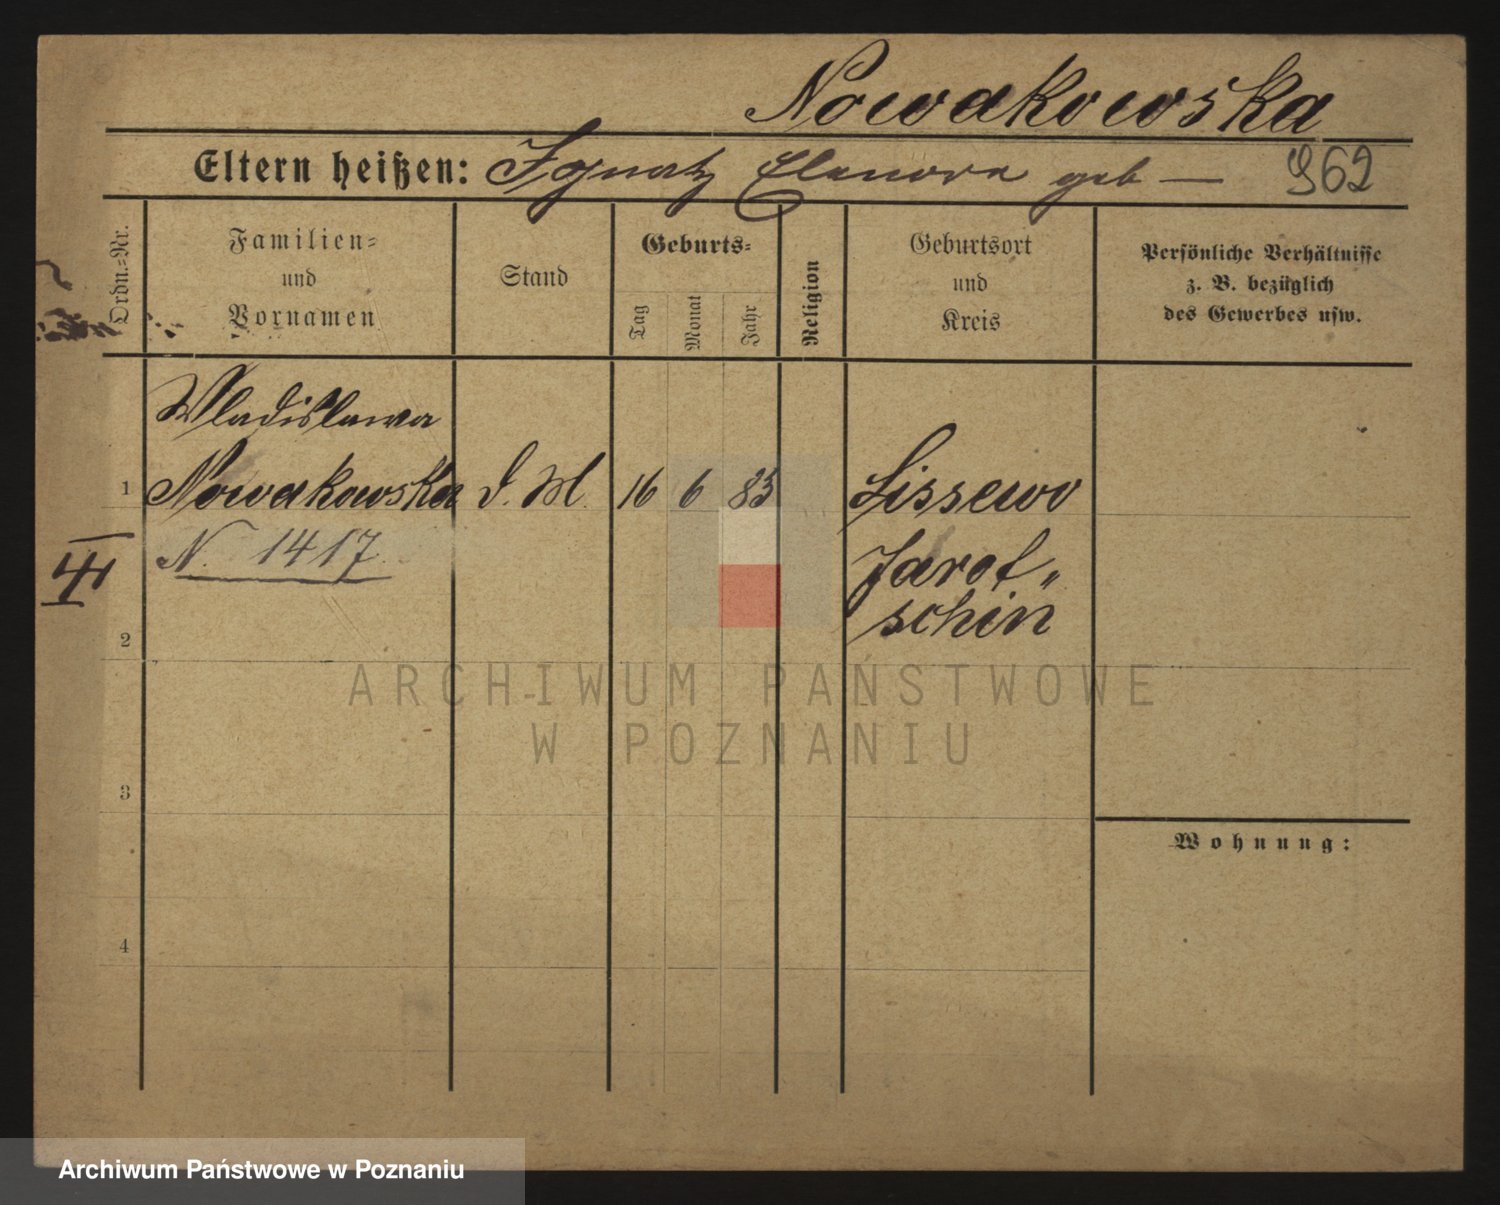 Nowakowska
Eltern heißen: Ignatz Elenora geb — 962
Ordn.=Nr.
Familien=
und
Vornamen
Stand
Geburts=
Tag
Monat
Jahr
Religion
Geburtsort
und
Kreis
Persönliche Verhältnisse
z. B. bezüglich
des Gewerbes usw.
Wladislawa
1 Nowakowska D. M. 16 6 83 Lissewo
N. 1417 Jarot„
III
schin
2
3
Wohnung:
4
ARCHIWUM PAŃSTWOWE
W POZNANIU
Archiwum Państwowe w Poznaniu